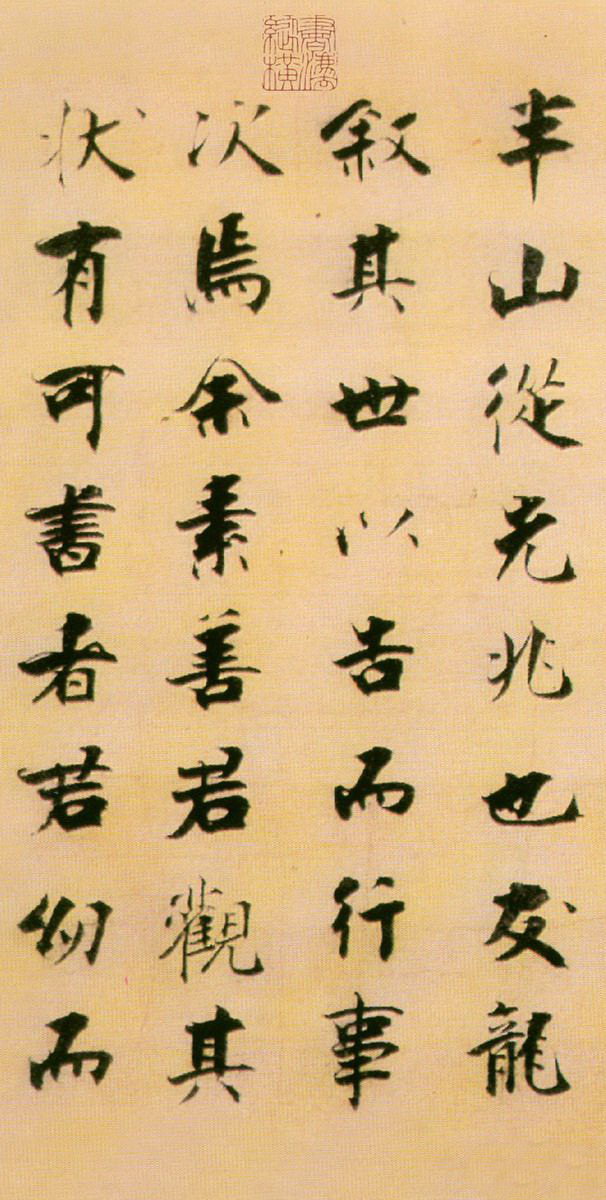 半山從先兆也友龍
叙其世以告而行事
次焉余素善若觀其
狀有可書者若幼而